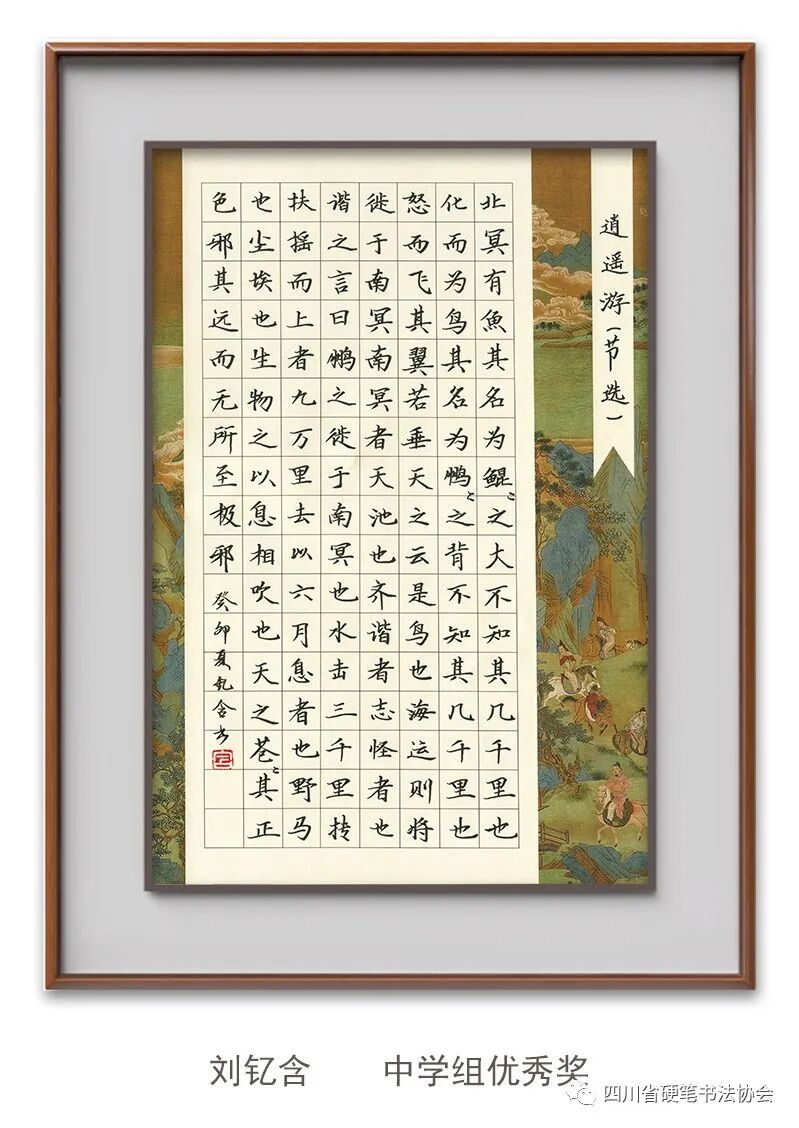 逍遥游(节选)
北冥有魚其名为鲲〻之大不知其几千里也
化而为鸟其名为鹏〻之背不知其几千里也
怒而飞其翼若垂天之云是鸟也海运则将
徙于南冥南冥者天池也齐谐者志怪者也
谐之言曰鹏之徙于南冥也水击三千里抟
扶摇而上者九万里去以六月息者也野马
也尘埃也生物之以息相吹也天之苍〻其正
色邪其远而无所至极邪 癸卯夏钇含书
刘钇含 中学组优秀奖
四川省硬笔书法协会